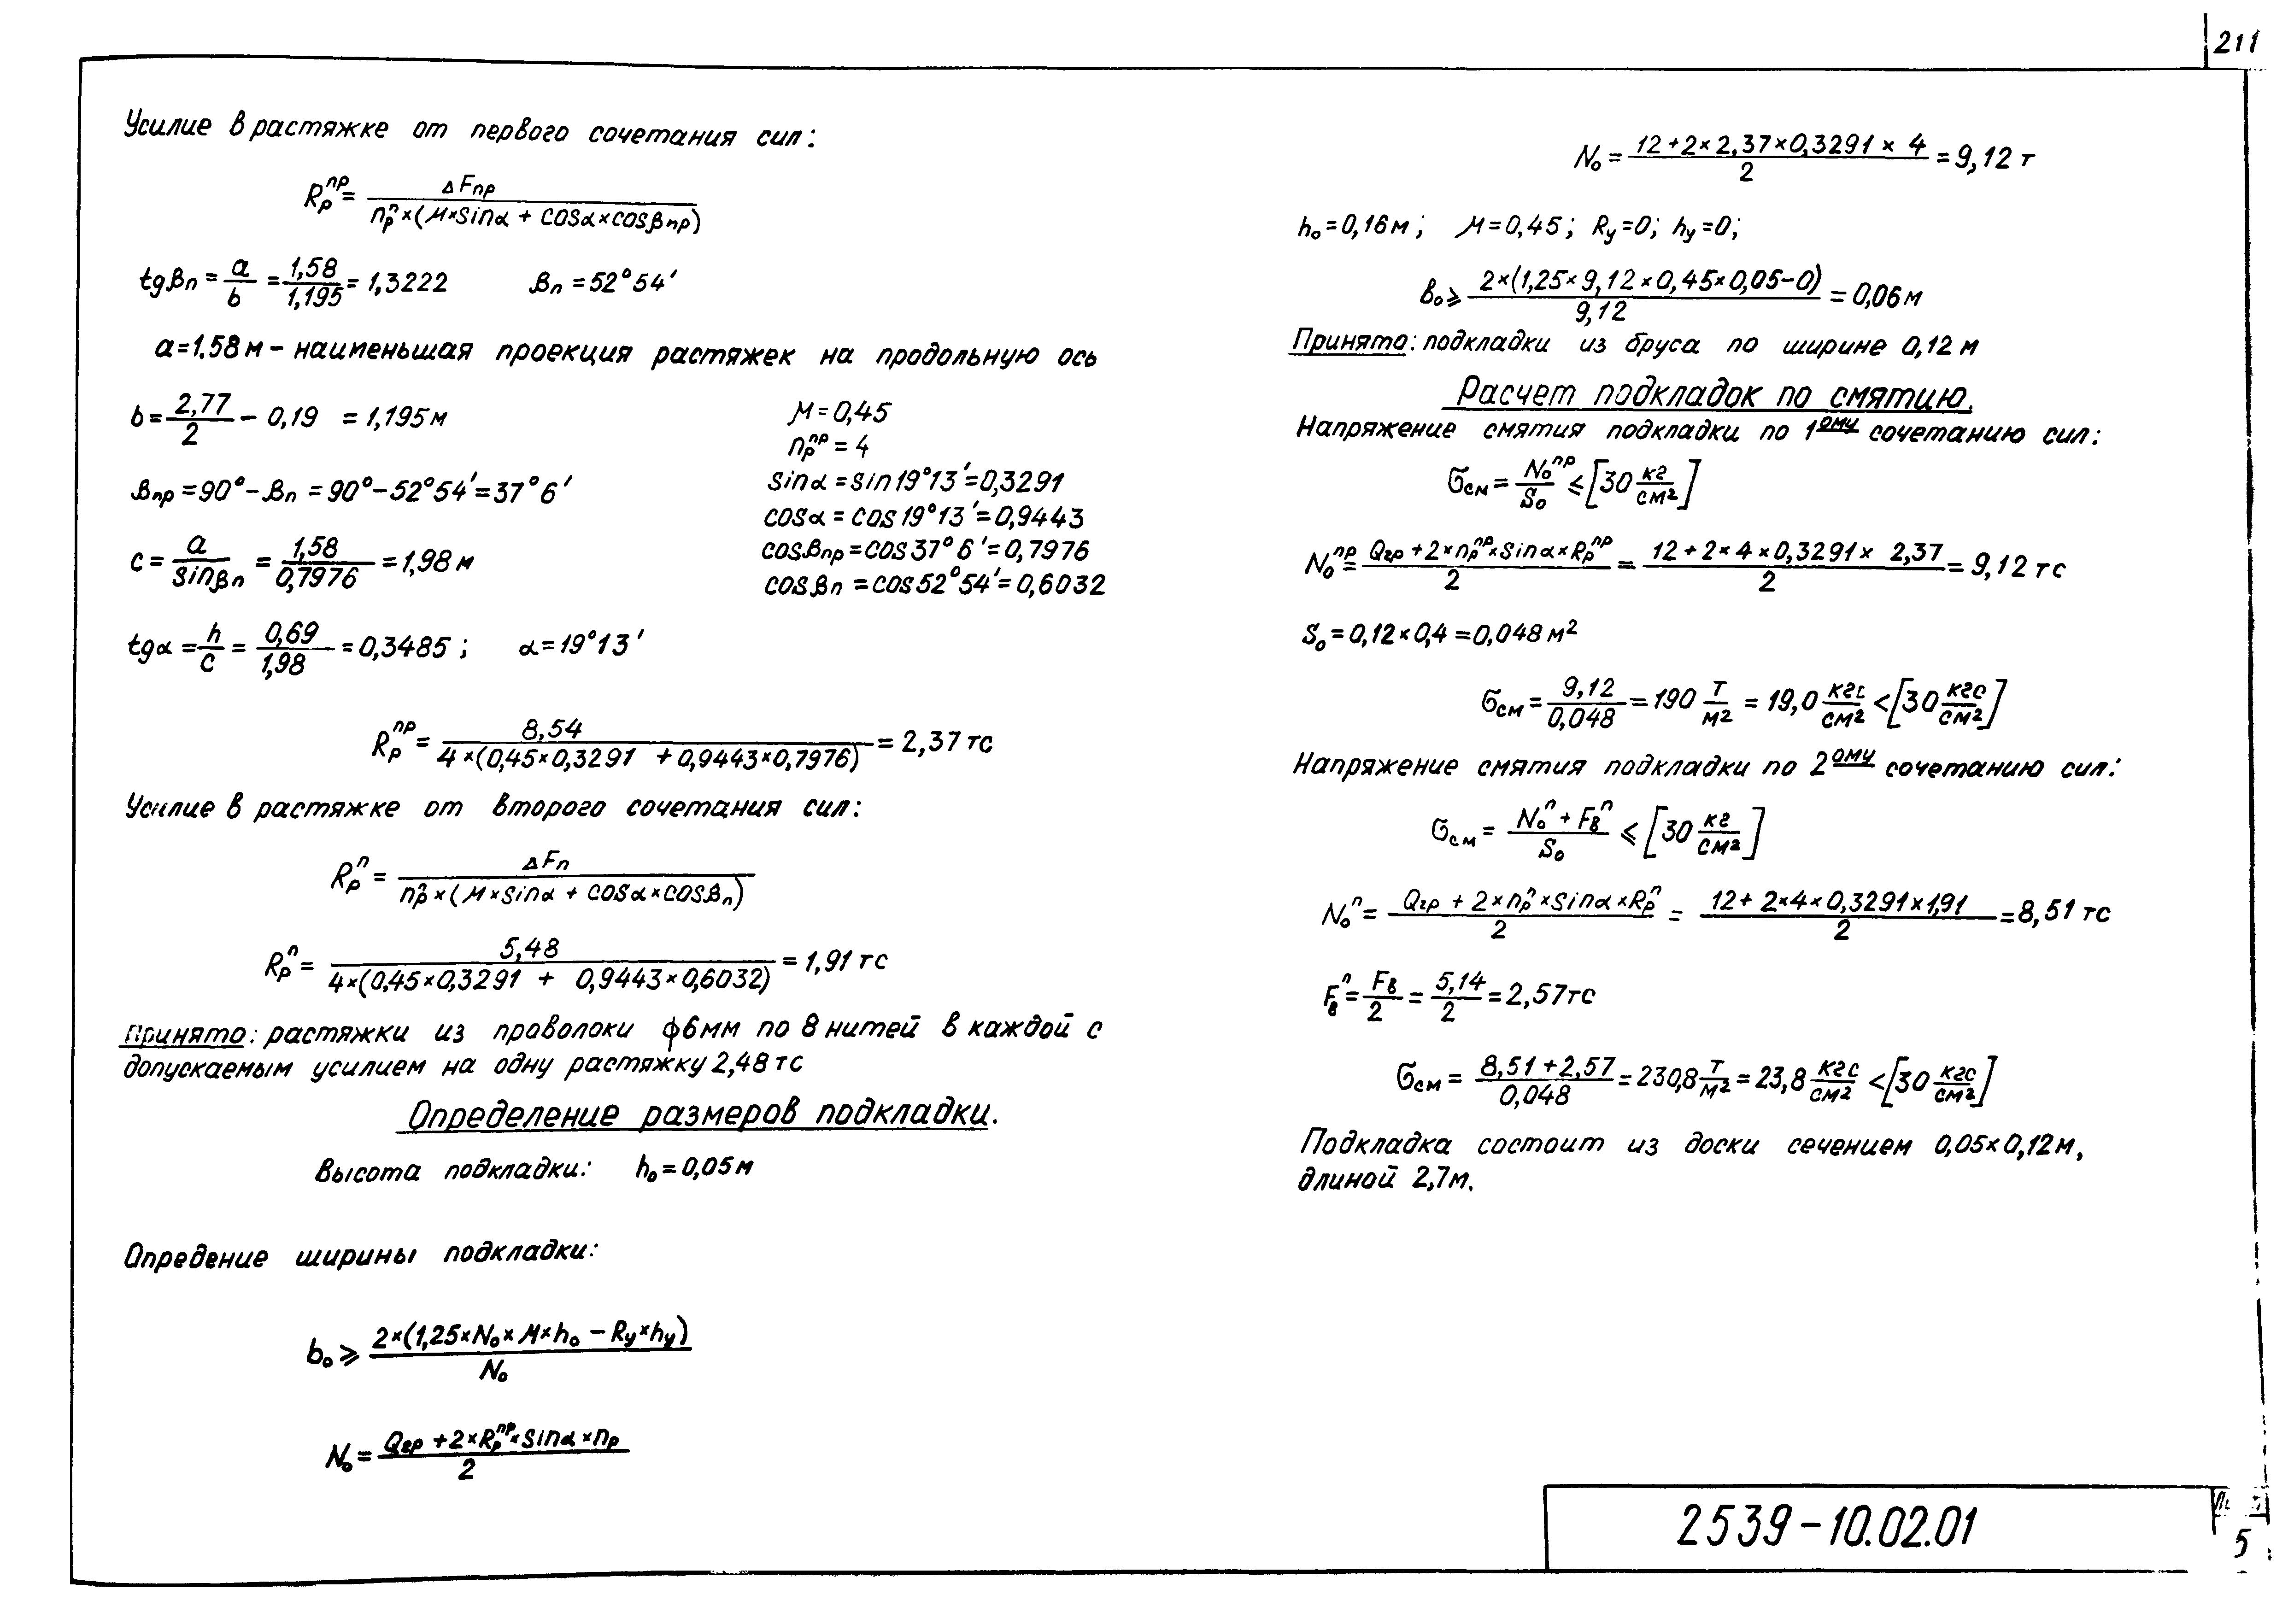 211
Усилие в растяжке от первого сочетания сил:
Rₚⁿᵖ = ΔFпр / nₚⁿ×(μ×sinα + cosα×cosβпр)
tgβп = a/b = 1,58/1,195 = 1,3222 βп = 52°54′
a=1,58м – наименьшая проекция растяжек на продольную ось
b = 2,77/2 – 0,19 = 1,195м
βпр = 90° – βп = 90° – 52°54′ = 37°6′
c = a/sinβп = 1,58/0,7976 = 1,98м
tgα = h/c = 0,69/1,98 = 0,3485; α = 19°13′
μ = 0,45
nₚⁿᵖ = 4
sinα = sin19°13′ = 0,3291
cosα = cos19°13′ = 0,9443
cosβпр = cos37°6′ = 0,7976
cosβп = cos52°54′ = 0,6032
Rₚⁿᵖ = 8,54 / 4×(0,45×0,3291 + 0,9443×0,7976) = 2,37 тс
Усилие в растяжке от второго сочетания сил:
Rₚⁿ = ΔFп / nₚⁿ×(μ×sinα + cosα×cosβп)
Rₚⁿ = 5,48 / 4×(0,45×0,3291 + 0,9443×0,6032) = 1,91 тс
Принято: растяжки из проволоки ϕ6мм по 8 нитей в каждой с
допускаемым усилием на одну растяжку 2,48 тс
Определение размеров подкладки.
Высота подкладки: h₀ = 0,05м
Опредение ширины подкладки:
b₀ ⩾ 2×(1,25×N₀×μ×h₀ – Rу×hу) / N₀
N₀ = Qгр + 2×Rₚⁿᵖ×sinα×nр / 2
N₀ = 12+2×2,37×0,3291×4 / 2 = 9,12 т
h₀=0,16м; μ=0,45; Rу=0; hу=0;
b₀ ⩾ 2×(1,25×9,12×0,45×0,05–0) / 9,12 = 0,06м
Принято: подкладки из бруса по ширине 0,12м
Расчет подкладок по смятию.
Напряжение смятия подкладки по 1ому сочетанию сил:
σсм = N₀ⁿᵖ/S₀ ⩽ [30 кг/см²]
N₀ⁿᵖ = Qгр + 2×nₚⁿᵖ×sinα×Rₚⁿᵖ / 2 = 12+2×4×0,3291×2,37 / 2 = 9,12 тс
S₀ = 0,12×0,4 = 0,048м²
σсм = 9,12/0,048 = 190 т/м² = 19,0 кгс/см² < [30 кгс/см²]
Напряжение смятия подкладки по 2ому сочетанию сил:
σсм = N₀ⁿ + Fвⁿ / S₀ ⩽ [30 кг/см²]
N₀ⁿ = Qгр + 2×nₚⁿ×sinα×Rₚⁿ / 2 = 12+2×4×0,3291×1,91 / 2 = 8,51 тс
Fвⁿ = Fв/2 = 5,14/2 = 2,57тс
σсм = 8,51+2,57 / 0,048 = 230,8 т/м² = 23,8 кгс/см² < [30 кгс/см²]
Подкладка состоит из доски сечением 0,05×0,12м,
длиной 2,7м.
2539-10.02.01
5